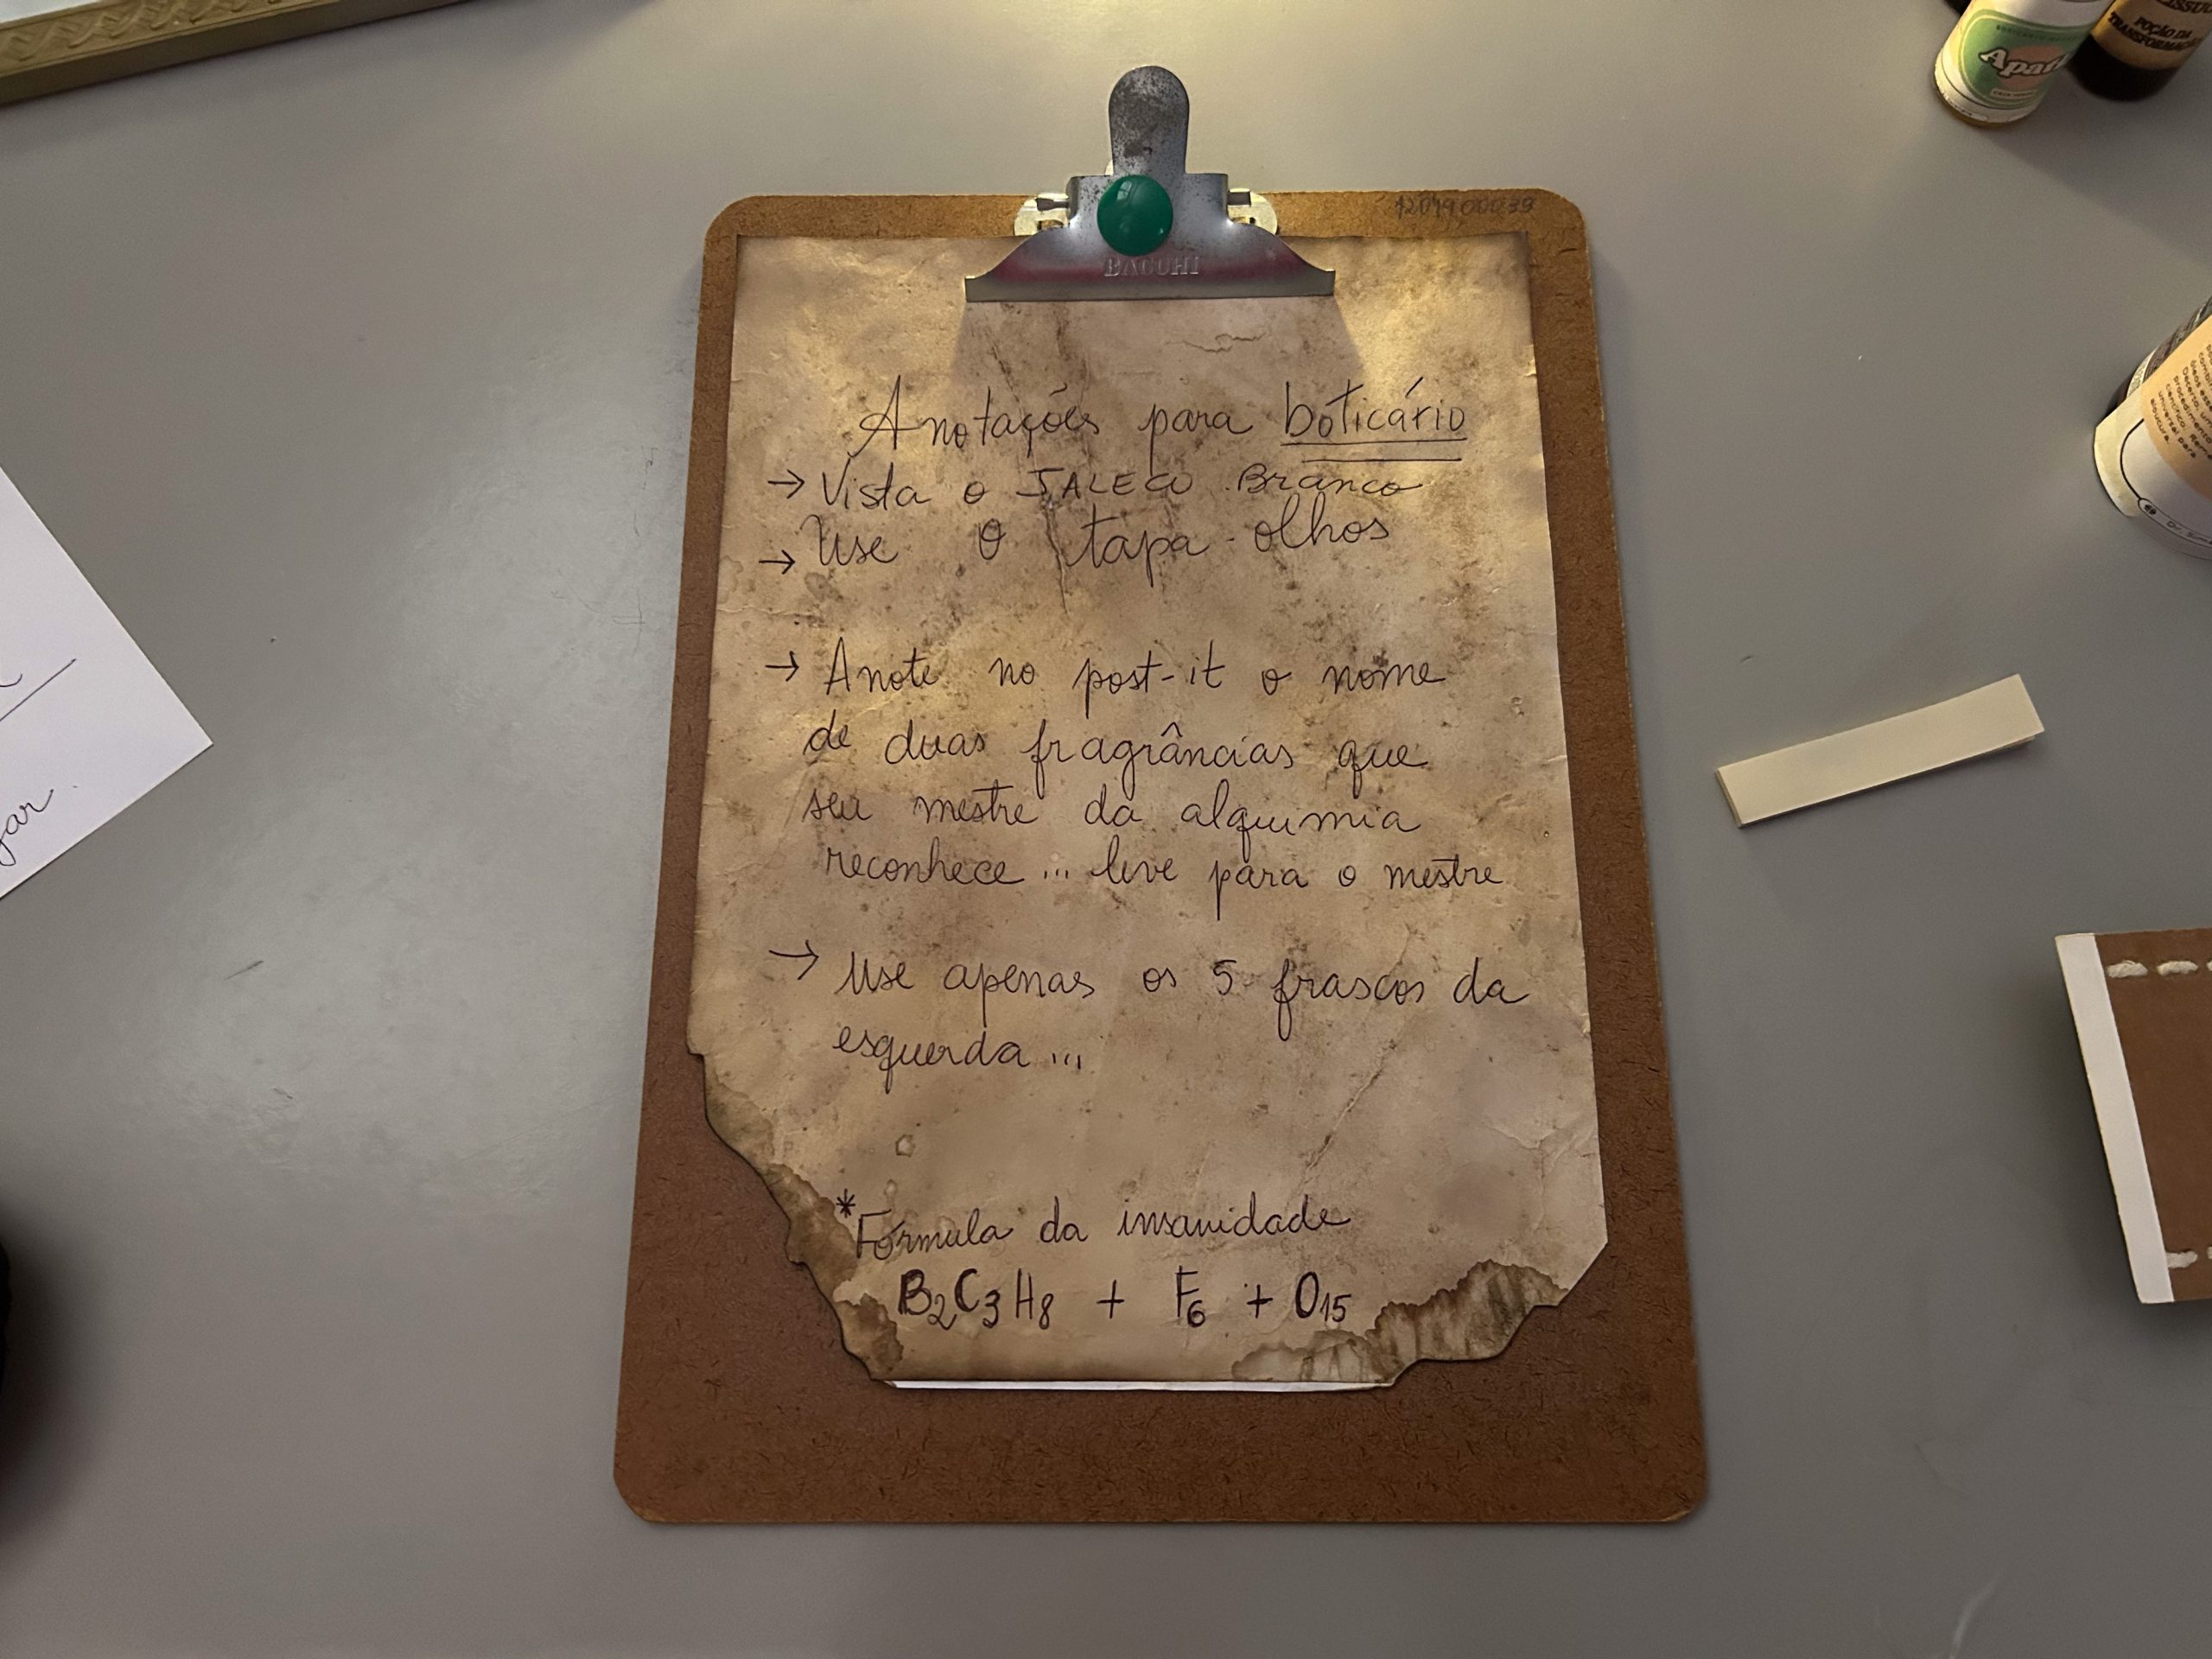 BACCHI
Anotações para boticário
→ Vista o JALECO Branco
→ Use O tapa-olhos
→ Anote no post-it o nome
de duas fragrâncias que
seu mestre da alquimia
reconhece... leve para o mestre
→ Use apenas os 5 frascos da
esquerda...
*Fórmula da insanidade
B2C3H8 + F6 + O15
POÇÃO DA